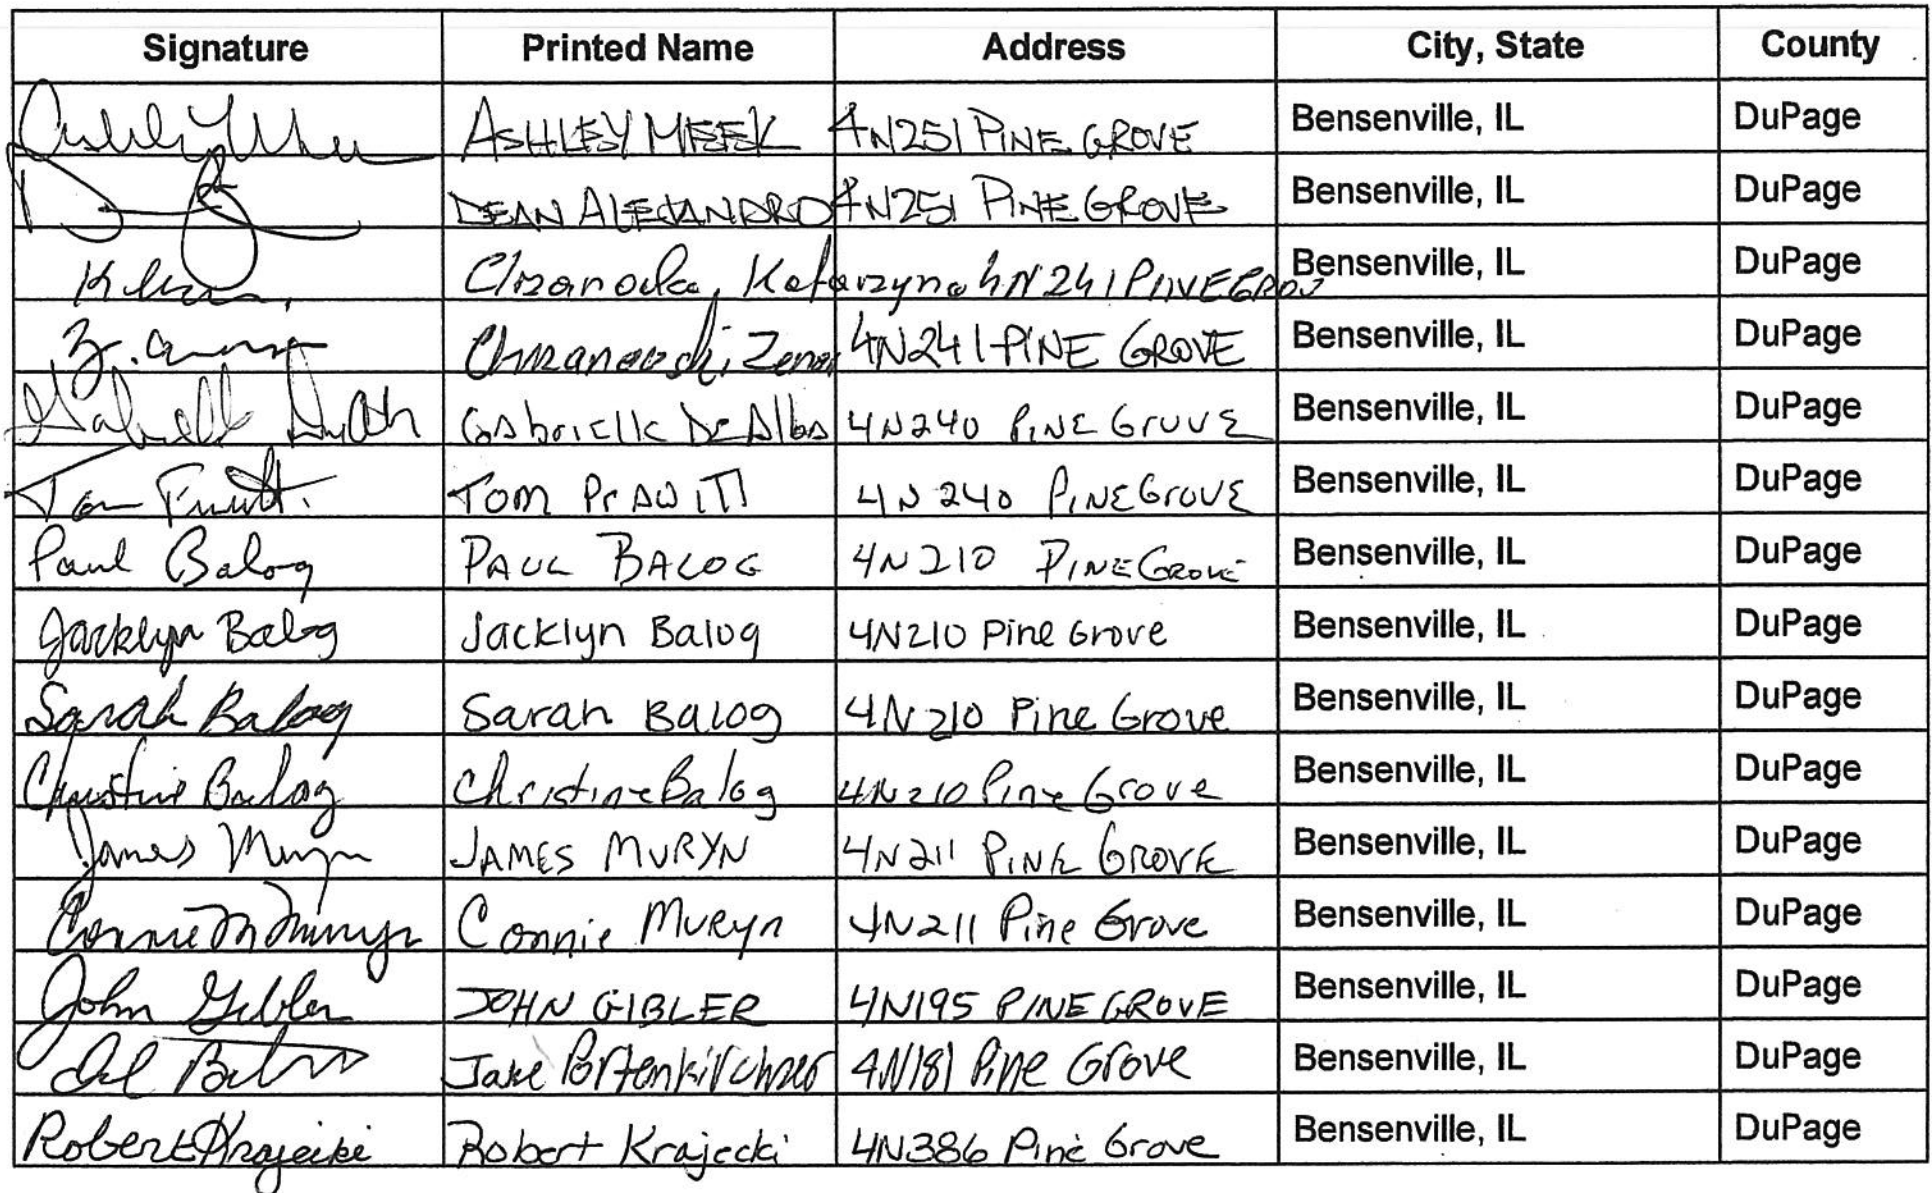 Signature Printed Name Address City, State County
Ashley Meek ASHLEY MEEK 4N251 PINE GROVE Bensenville, IL DuPage
DEAN ALEJANDRO 4N251 PINE GROVE Bensenville, IL DuPage
Katarzyna 4N241 PINEGROV Bensenville, IL DuPage
Chrzanowski Zenon 4N241 PINE GROVE Bensenville, IL DuPage
Gabrielle DeAlba 4N240 PINE GROVE Bensenville, IL DuPage
Tom Prawitt TOM PrAWITT 4N240 PINE GROVE Bensenville, IL DuPage
Paul Balog PAUL BALOG 4N210 PINE GROVE Bensenville, IL DuPage
Jacklyn Balog Jacklyn Balog 4N210 Pine Grove Bensenville, IL DuPage
Sarah Balog Sarah Balog 4N210 Pine Grove Bensenville, IL DuPage
Christine Balog Christine Balog 4N210 Pine Grove Bensenville, IL DuPage
James Muryn JAMES MURYN 4N211 PINE GROVE Bensenville, IL DuPage
Connie M Muryn Connie Muryn 4N211 Pine Grove Bensenville, IL DuPage
John Gibler JOHN GIBLER 4N195 PINE GROVE Bensenville, IL DuPage
Jake Portenkirchner 4N181 Pine Grove Bensenville, IL DuPage
Robert Krajecki Robert Krajecki 4N386 Pine Grove Bensenville, IL DuPage